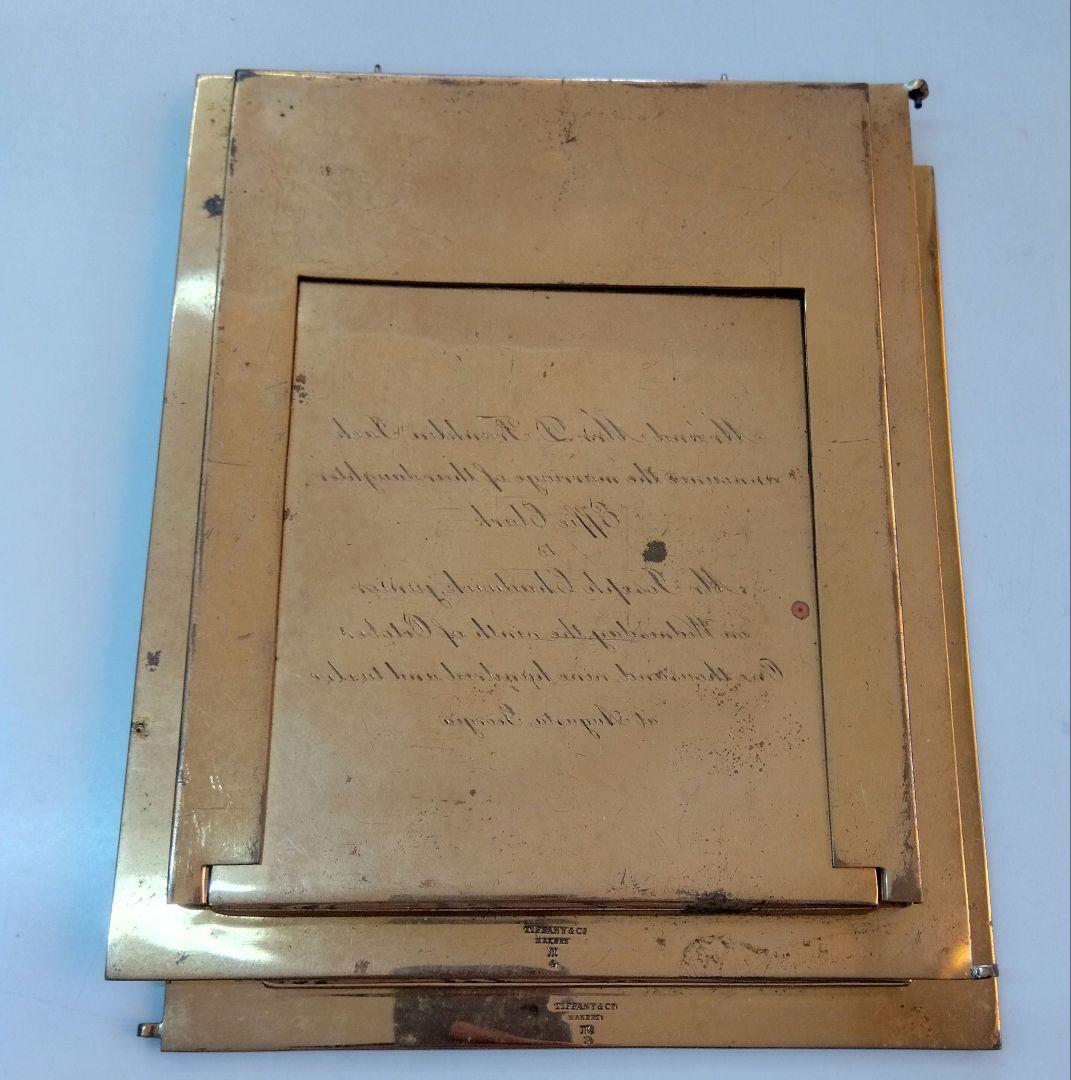 Mr. and Mrs. D. Franklin Jack
announce the marriage of their daughter
Effie Clark
to
Mr. Joseph Chadwick, junior
on Wednesday, the ninth of October
One thousand, nine hundred and twelve
at Augusta, Georgia
TIFFANY & CO
MAKERS
M
TIFFANY & CO
MAKERS
M